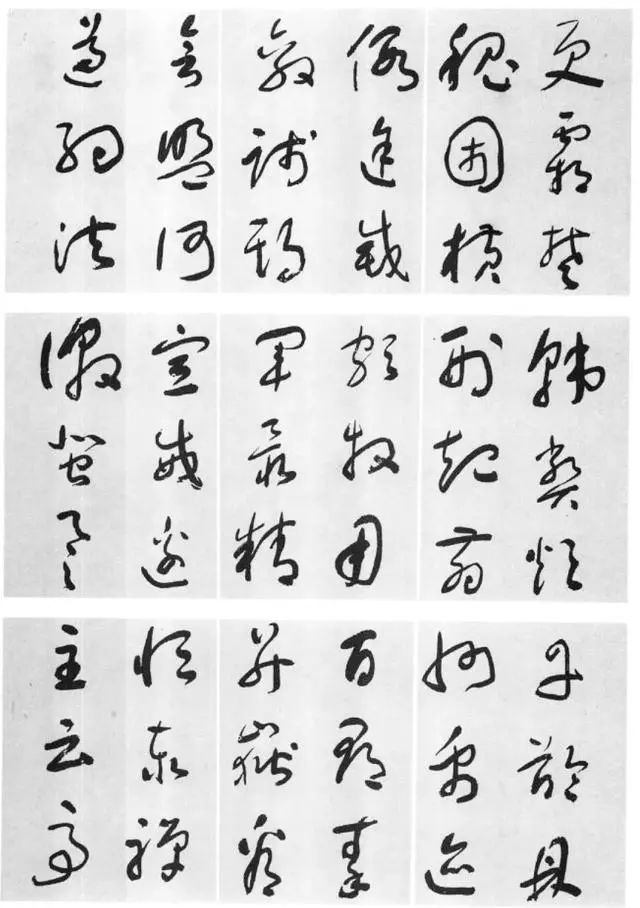 更霸
魏困橫
假途滅
虢踐
會盟何
遵約法
韓弊煩
刑起翦
頗牧用
軍最精
宣威

丹
州禹跡
百郡秦
并嶽
恒泰禪
主云亭